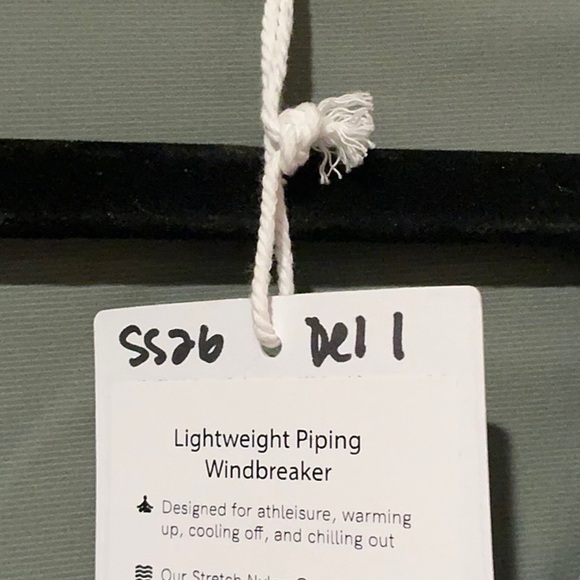 SS26 Del 1
Lightweight Piping
Windbreaker
Designed for athleisure, warming
up, cooling off, and chilling out
Our Stretch